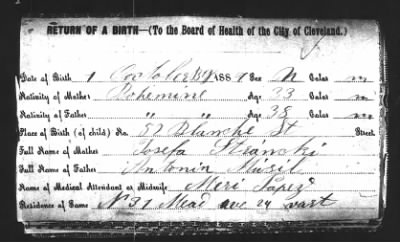 RETURN OF A BIRTH—(To the Board of Health of the City of Cleveland.)
Date of Birth 1 October 188 Sex M Color w
Nativity of Mother Bohemine Age 33 Color w
Nativity of Father " " Age 38 Color w
Place of Birth (of child) No. 57 Blanche St Street
Full Name of Mother Josefa Stranski
Full Name of Father Antonin Musil
Name of Medical Attendant or Midwife Meri Lapez
Residence of Same No 31 Mead ave 24 vart